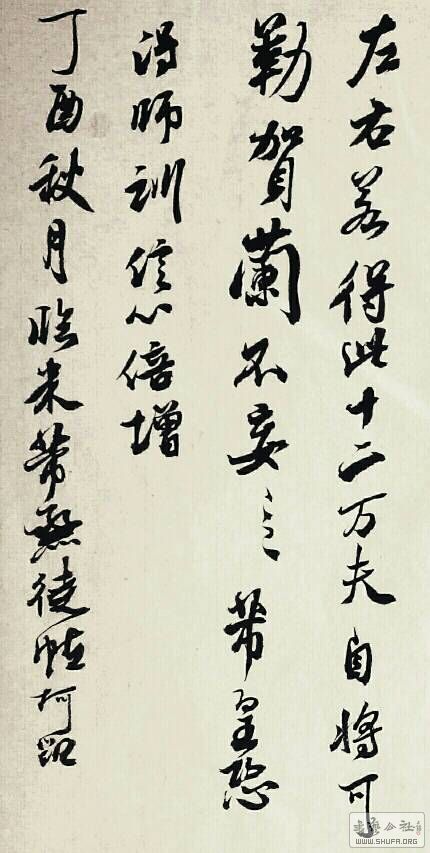 左右若得此十二万夫自将可
勒贺兰不妄々芾皇恐
得師训信心倍增
丁酉秋月临米芾愚徒恠柯凯
書法公社
WWW.SHUFA.ORG